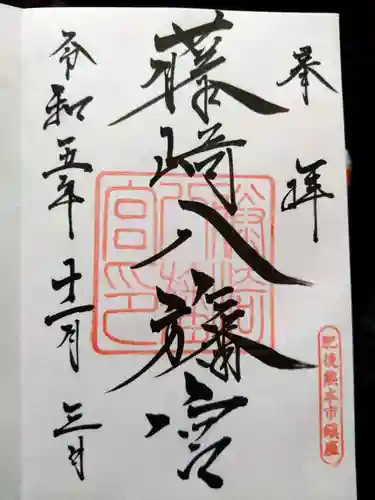 奉拝
藤崎八旛宮
藤崎八旛宮印
肥後熊本市鎮座
令和五年十一月三日